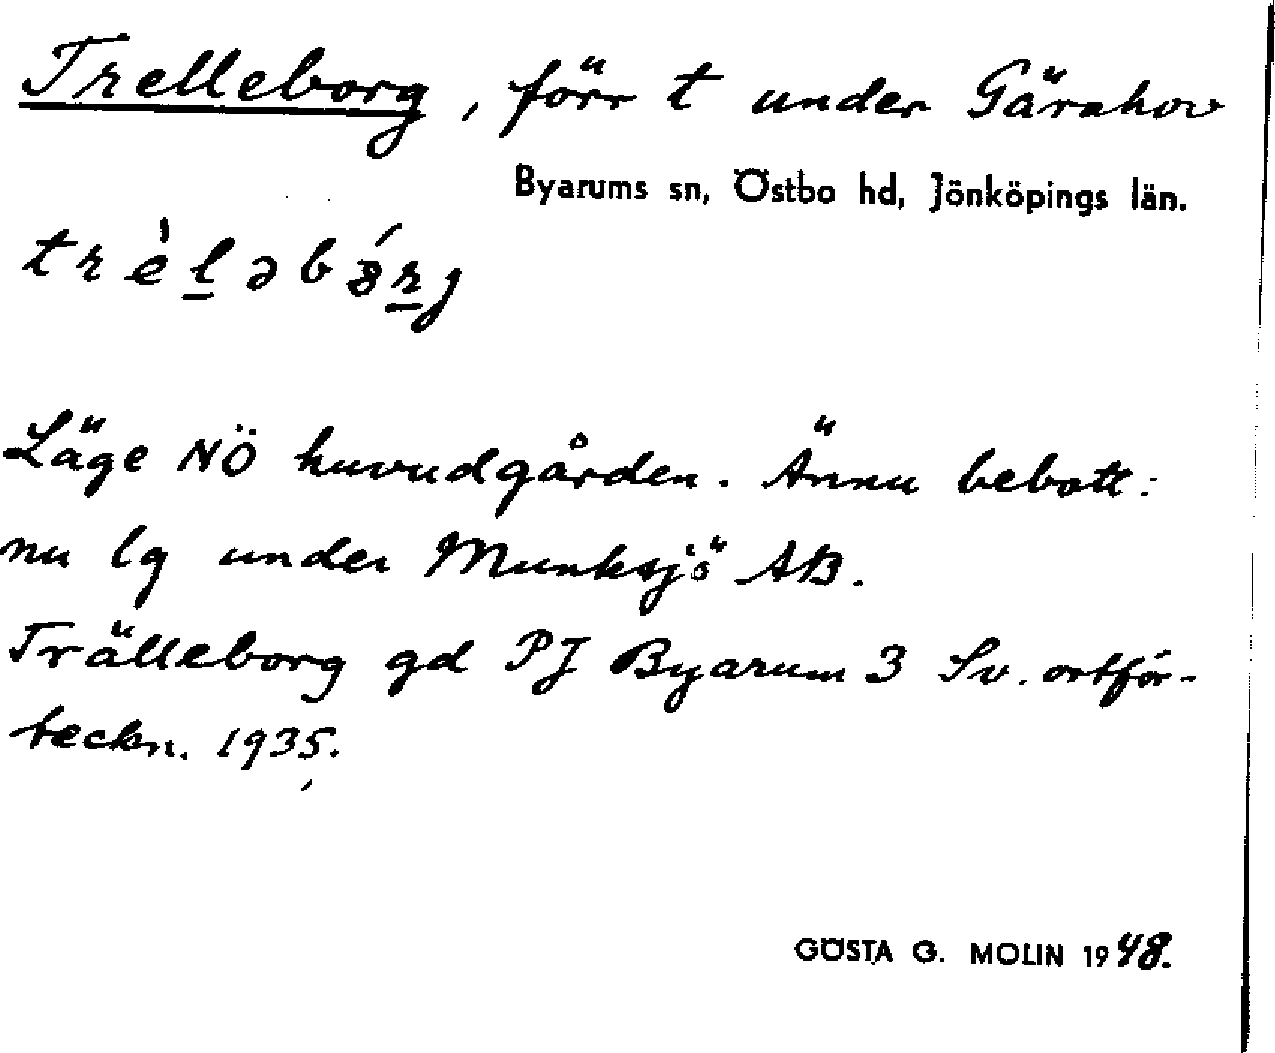 Trelleborg, förr t under Gärahov
Byarums sn, Östbo hd, Jönköpings län.
Läge NÖ huvudgården. Ännu bebott:
nu lg under Munksjö AB.
Trälleborg gd PJ Byarum 3 Sv. ortför-
teckn. 1935.
GÖSTA G. MOLIN 1948.